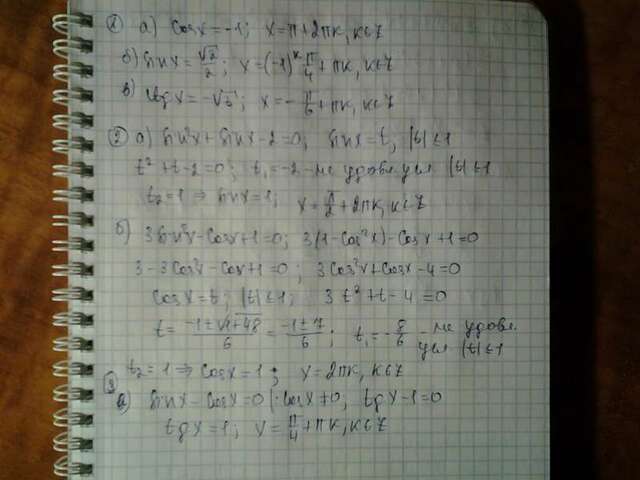 ① а) cosx = -1; x = π + 2πk, k∈Z
б) sinx = √2/2; x = (-1)^k π/4 + πk, k∈Z
в) ctgx = -√3; x = -π/6 + πk, k∈Z
② а) sin²x + sinx - 2 = 0, sinx = t, |t| ≤ 1
t² + t - 2 = 0; t₁ = -2 - не удовл усл |t| ≤ 1
t₂ = 1 ⇒ sinx = 1; x = π/2 + 2πk, k∈Z
б) 3sin²x - cosx + 1 = 0; 3(1 - cos²x) - cosx + 1 = 0
3 - 3cos²x - cosx + 1 = 0; 3cos²x + cosx - 4 = 0
cosx = t; |t| ≤ 1; 3t² + t - 4 = 0
t = (-1 ± √(1 + 48))/6 = (-1 ± 7)/6; t₁ = -8/6 - не удовл.
усл |t| ≤ 1
t₂ = 1 ⇒ cosx = 1; x = 2πk, k∈Z
③
а) sinx - cosx = 0 |: cosx ≠ 0, tgx - 1 = 0
tgx = 1; x = π/4 + πk, k∈Z